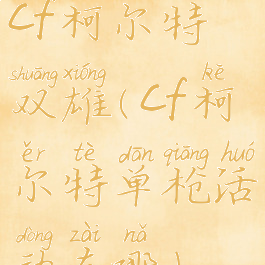 cf柯尔特
shuāng xióng kē
双雄(cf柯
ěr tè dān qiāng huó
尔特单枪活
dòng zài nǎ
动在哪)